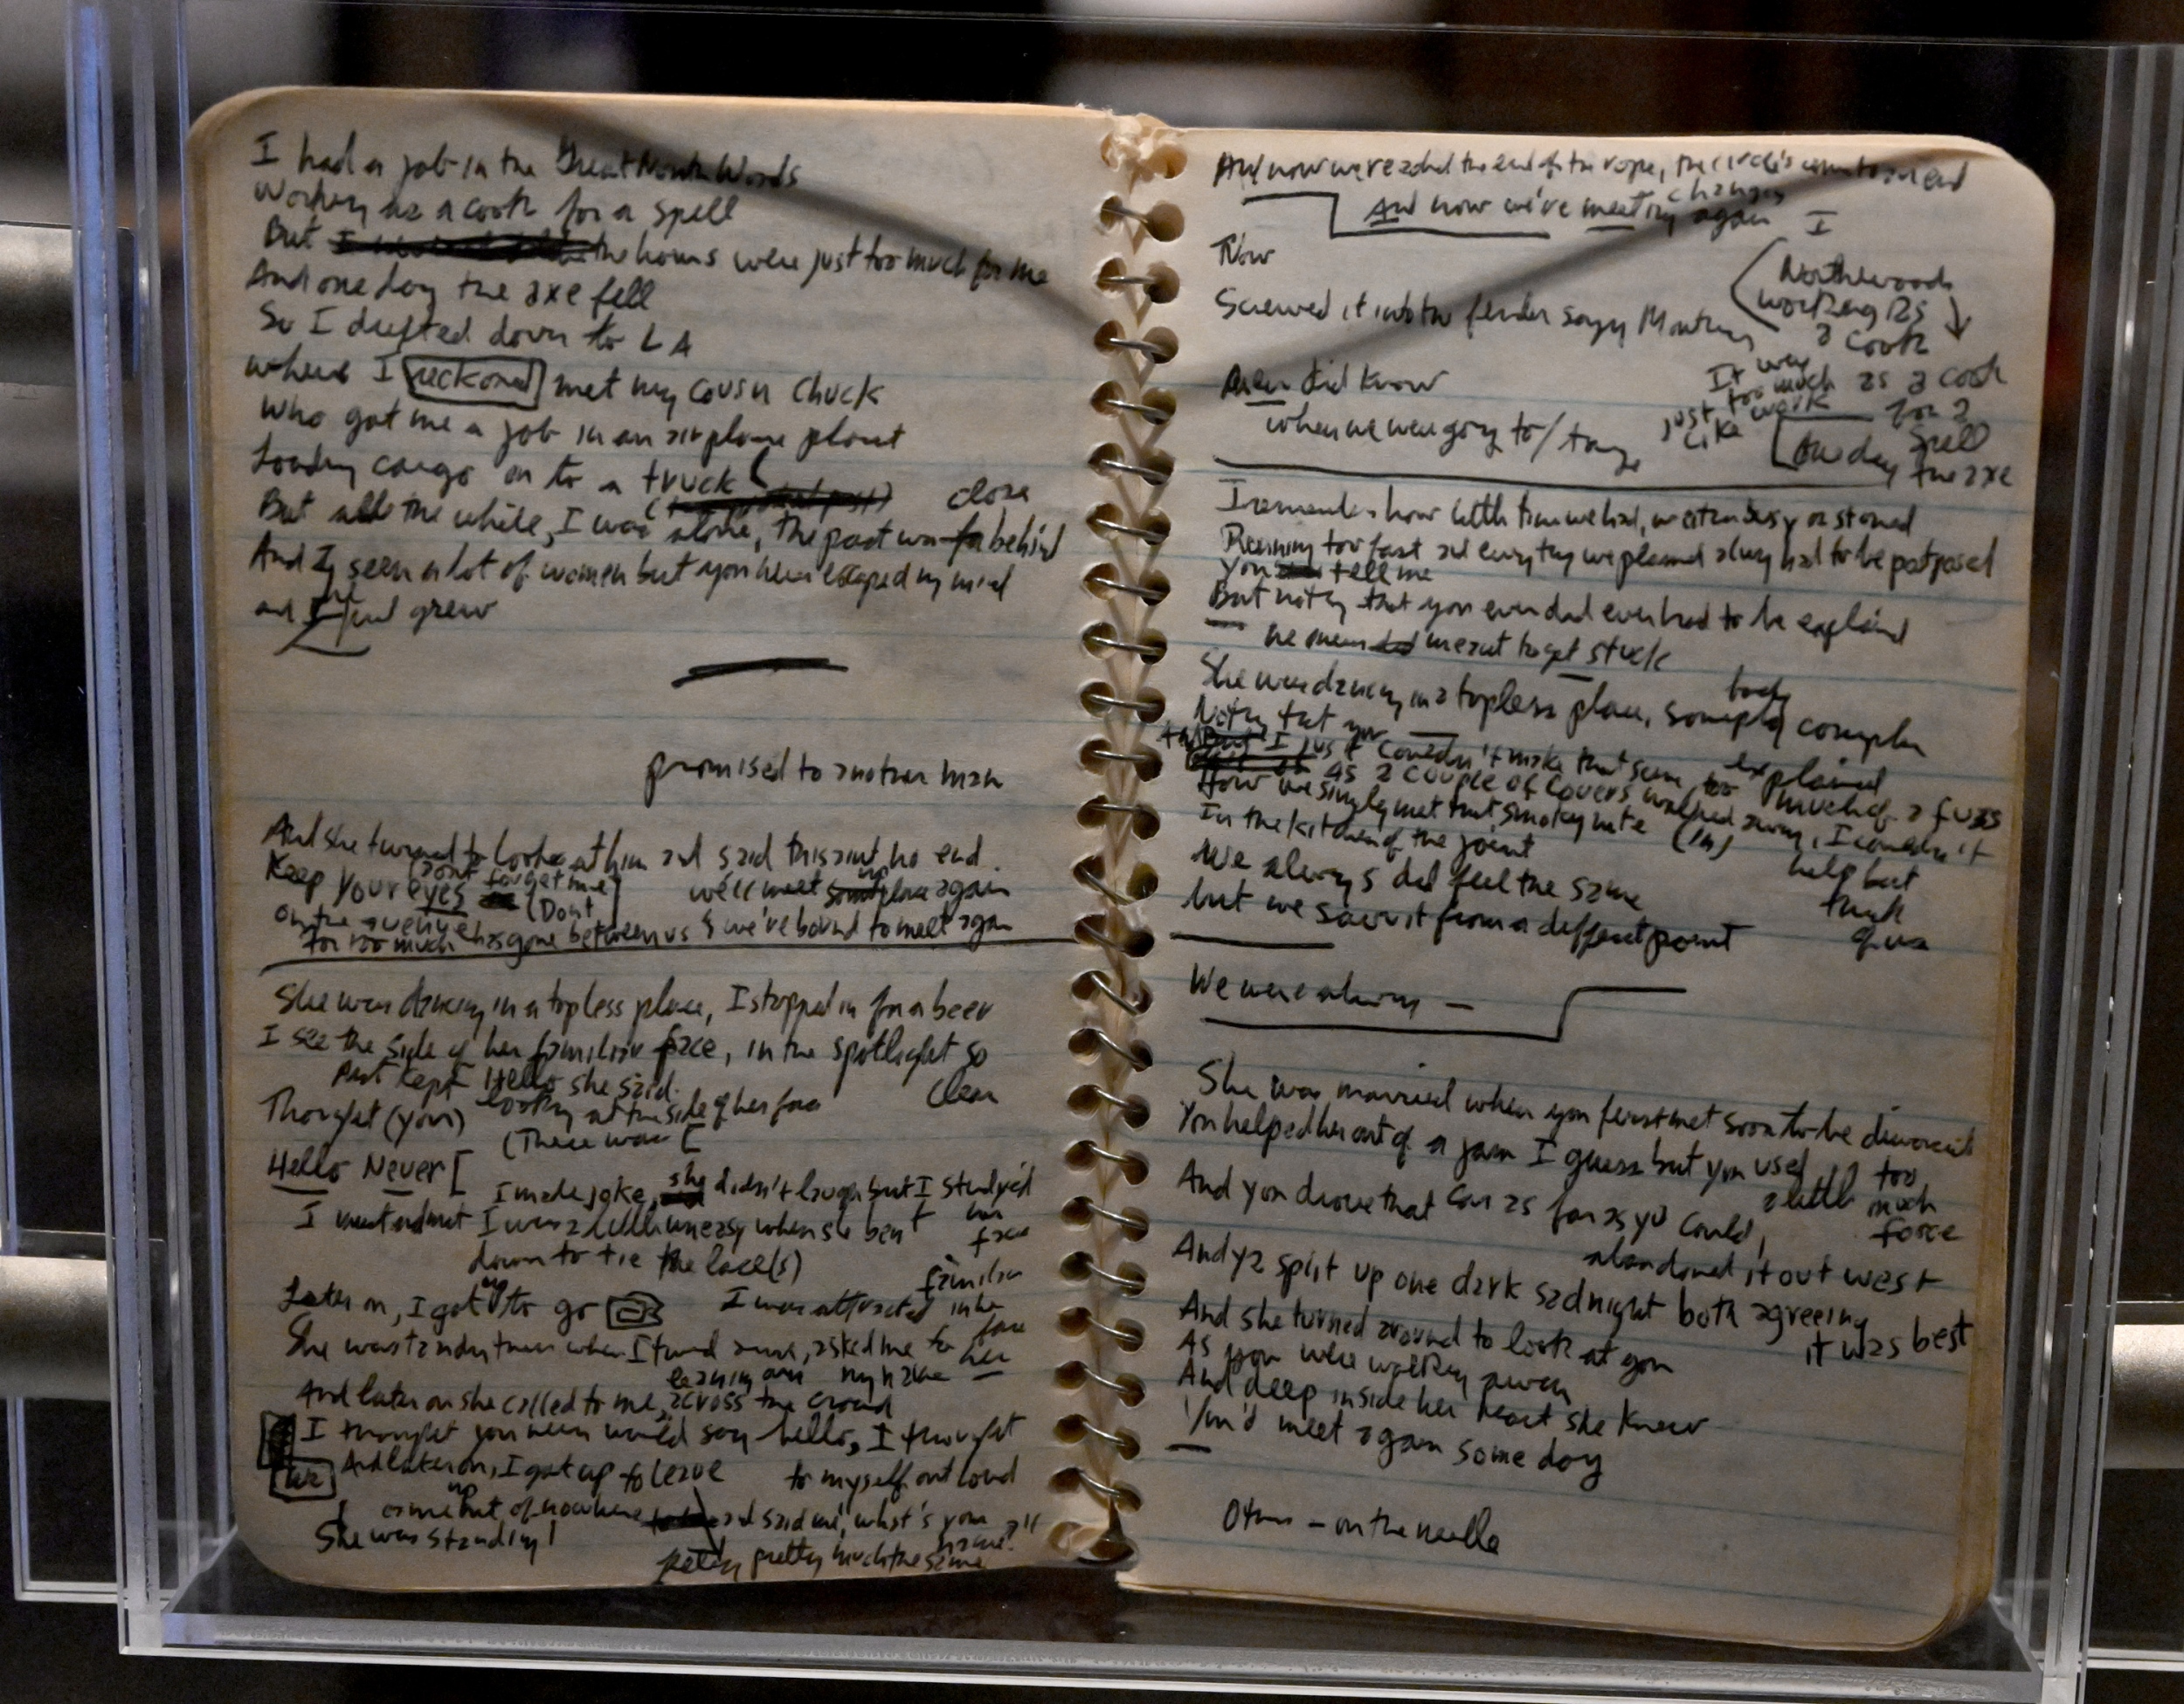 I had a job in the Great North Woods
Working as a cook for a spell
But the hours were just too much for me
And one day the axe fell
So I drifted down to LA
where I reckoned met my cousin Chuck
Who got me a job in an airplane plant
Loading cargo on to a truck
But all the while, I was alone, the past was close behind
And I seen a lot of women but you never escaped my mind
and I just grew
promised to another man
And she turned to look at him and said this aint no end
(Dont forget me)
Keep your eyes (Dont
we'll meet again
on the avenue
for too much has gone between us & we're bound to meet again
She was dancing in a topless place, I stopped in for a beer
I see the side of her familiar face, in the spotlight so
clear
But kept Hello she said
Thought (you) looking at the side of her face
(There was [
Hello Never [
I made joke, she didn't laugh but I studyed
her face
I must admit I was a little uneasy when she bent
down to tie the lace(s)
familiar
Later on, I got up to go
I was attracted in her
face
She was standing there when I turned around, asked me to her
leaning over my name
And later on she called to me, across the crowd
I thought you never would say hello, I thought
to myself out loud
And later on, I got up to leave
came up out of nowhere and said me, what's your
name?"
She was standing
pretty much the same
And now we reached the end of the rope, the circle's come to an end
changes
And now we're meeting again
I
Now
Northwoods
working as
a cook
Screwed it into the fender saying
It was
just too much
like work
as a cook
for a
spell
One day
the axe
did know
when we were going to /
I remember how little time we had, we stoned
Running too fast and everything we planned always had to be postponed
You tell me
But nothing that you ever did ever had to be explained
he never did meant to get stuck
She was dancing in a topless place,
body
Nothing that you
I just couldn't make that scene, too much of a fuss
explained
as a couple of lovers walked away, I couldn't
help but
think
of us
How we singly met that smokey nite (in)
In the kitchen of the joint
We always did feel the same
but we saw it from a different point
We were always —
She was married when you first met soon to be divorced
You helped her out of a jam I guess but you used
a little too
much
force
And you drove that car as far as yo could,
abandoned it out west
And ya split up one dark sad night both agreeing
it was best
And she turned around to look at you
As you were walking away
And deep inside her heart she knew
You'd meet again some day
Others — on the needle